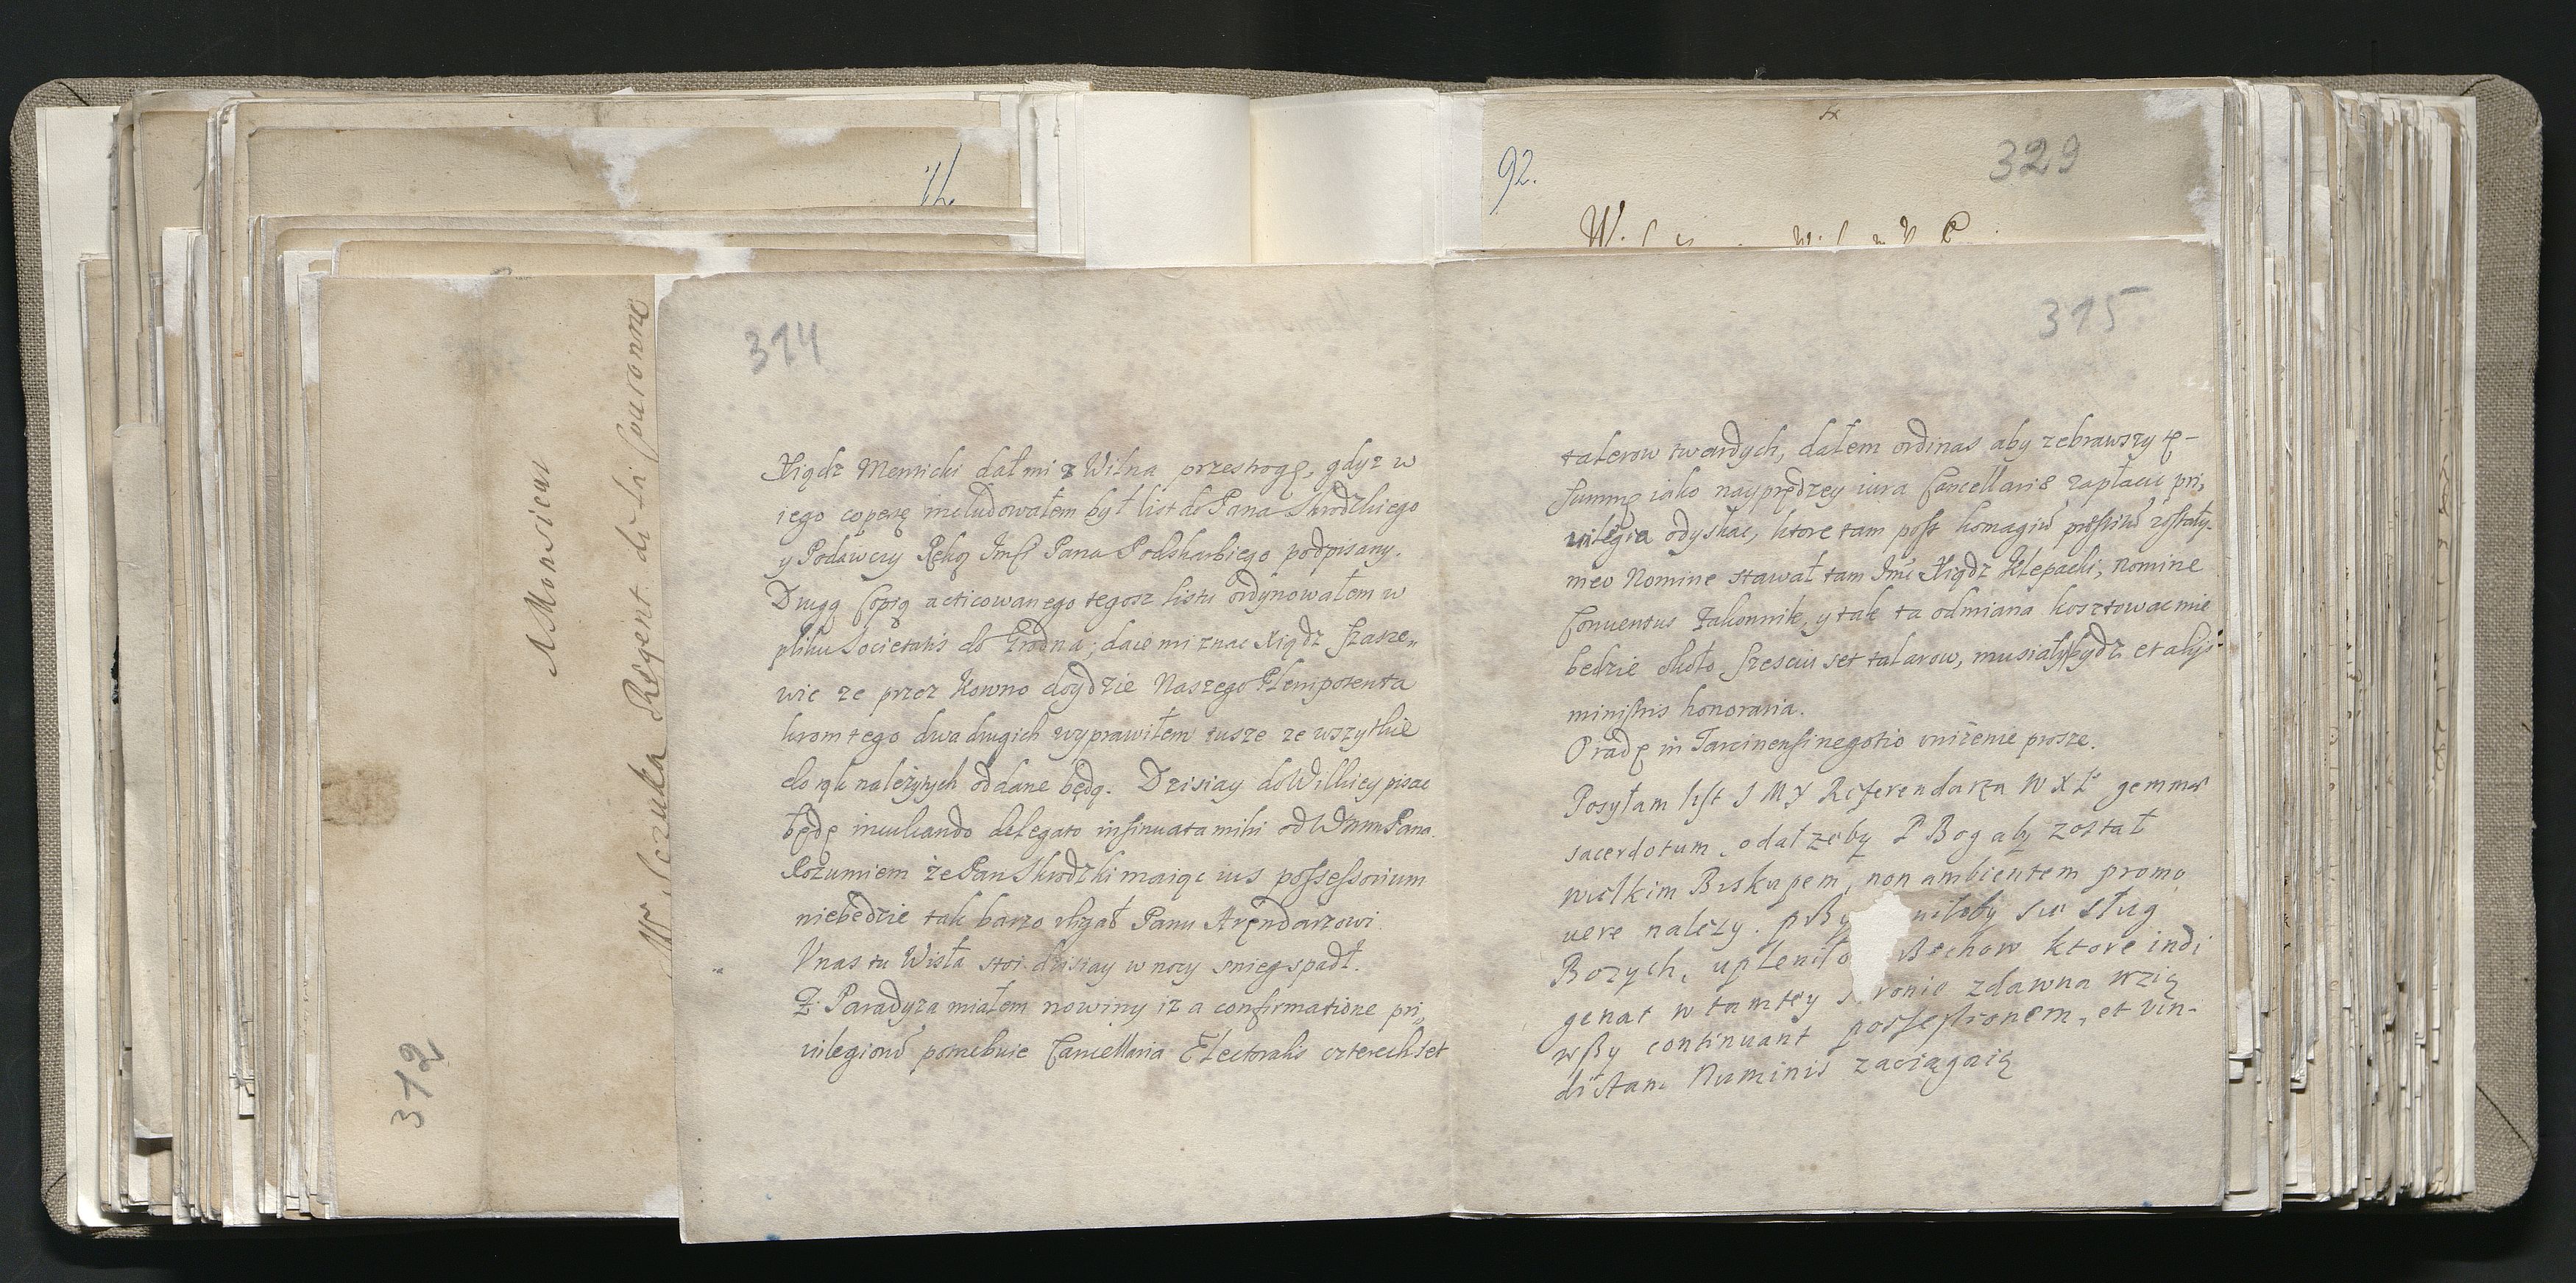 A Monsieur
Mr Sczuka Regent de la Couronne
312
314
Xiądz Memicki dał mi z Wilna przestrogę, gdyz w
iego coperę includowałem był list do Pana Skrodzkiego
y Podawczy Ręką Jmści Pana Podskarbiego podpisany.
Drugą Copią acticowanego tegosz listu ordynowałem w
pliku Societatis do Grodna; daie mi znac Xiądz Szasze„
wic ze przez Kowno doydzie Naszego Plenipotenta
krom tego dwa drugich wyprawiłem tusze ze wszytkie
do rąk należytych oddane będą. Dzisiay do Wilkiey pisac
będę inculcando delegato insinuata mihi od Wmm Pana
Rozumiem że Pan Skrodzki maiąc ius possessorium
niebędzie tak barzo ulegał Panu Arędarzowi.
U nas tu Wisła stoi dzisiay w nocy snieg spadł.
Z Paradyza miałem nowiny iz a confirmatione pri„
uilegiorū potrzebuie Cancellaria Electoralis czterechset
92.
329
315
talerow twardych, dałem ordinas aby zebrawszy tę-
summę iako nayprędzey iura Cancellariæ zapłacic pri,
uilegia odyskac, ktore tam post homagiū præstitū zostały.
meo Nomine stawał tam Jmć Xiądz Klepacki, nomine
Conuentus Zakonnik, y tak ta odmiana kosztowac mie
będzie około szesciu set talarow, musiały bydz et alijs
ministris honoraria.
O radę in Tarcinensi negotio uniżenie proszę.
Posyłam list J M X Referendarza W X L gemma
sacerdotum, odał zeby P Bog aby został
wielkim Biskupem, non ambientem promo
uere nalezy. pßy uiteby sw sług
Bozych, uplenilo Bechow ktore indi
genat w tamtey s ronie zdawna wzią
wßy continuant possessionem, et vin-
dictam Numinis zaciągaią